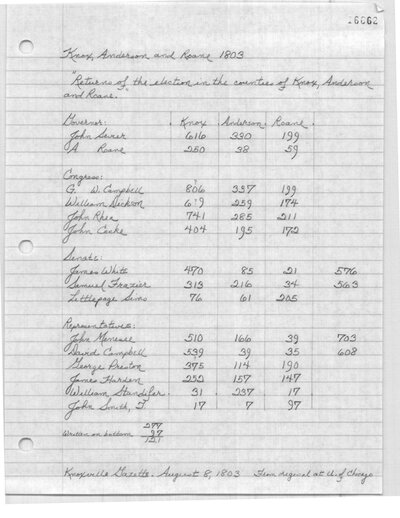 16662
Knox, Anderson and Roane 1803
"Returns of the election in the counties of Knox, Anderson
and Roane."
Governor: Knox Anderson Roane
John Sevier 616 330 199
A Roane 250 38 59
Congress:
G. W. Campbell 806 337 199
William Dickson 619 259 174
John Rhea 741 285 211
John Cocke 404 195 172
Senate:
James White 470 85 21 576
Samuel Frazier 313 216 34 563
Littlepage Sims 76 61 205
Representatives:
John Menesee 510 166 39 703
David Campbell 539 39 35 608
George Preston 375 114 190
James Harden 252 157 147
William Standifer 31 237 17
John Smith, T 17 7 97
277
Written on bottom 97
121
Knoxville Gazette. August 8, 1803 From original at U. of Chicago